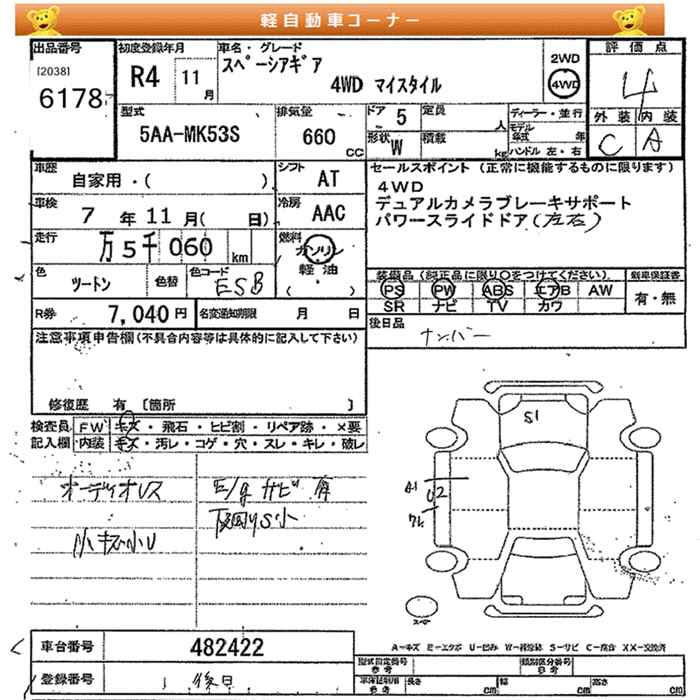 軽自動車コーナー
出品番号 初度登録年月 車名・グレード 評価点
[2038]
6178
R4 11月
スペーシアギア
4WD マイスタイル
2WD
4WD
4
外装 内装
C A
型式 排気量 ドア 5 定員 人 ディーラー・並行
5AA-MK53S 660 CC
形状 W 積載 kg
モデル年式 年
ハンドル 左・右
車歴 自家用・( )
シフト AT
セールスポイント(正常に機能するものに限ります)
4WD
デュアルカメラブレーキサポート
パワースライドドア(左右)
車検 7年 11月( 日)
冷房 AAC
走行 万5千060 km
燃料 ガソリン
軽・油
( ・ )
色 ツートン 色替 色コード ESB
装備品(純正品に限り○をつけてください。) 新車保証書
PS PW ABS エアB AW 有・無
SR ナビ TV カワ
R券 7,040円 名変通知期限 月 日
後日品
ナンバー
注意事項申告欄(不具合内容等は具体的に記入して下さい)
修復歴 有 [箇所 ]
検査員 FW キズ・飛石・ヒビ割・リペア跡・×要
記入欄 内装 キズ・汚レ・コゲ・穴・スレ・キレ・破レ
オーディオレス
E/gサビ有
S1
A1
U2
車台番号 482422
登録番号 後日
A=キズ E=エクボ U=凹み W=補修跡 S=サビ C=腐食 XX=交換済
型式指定番号 参考 類別区分番号 参考
長さ cm 幅 cm 高さ cm